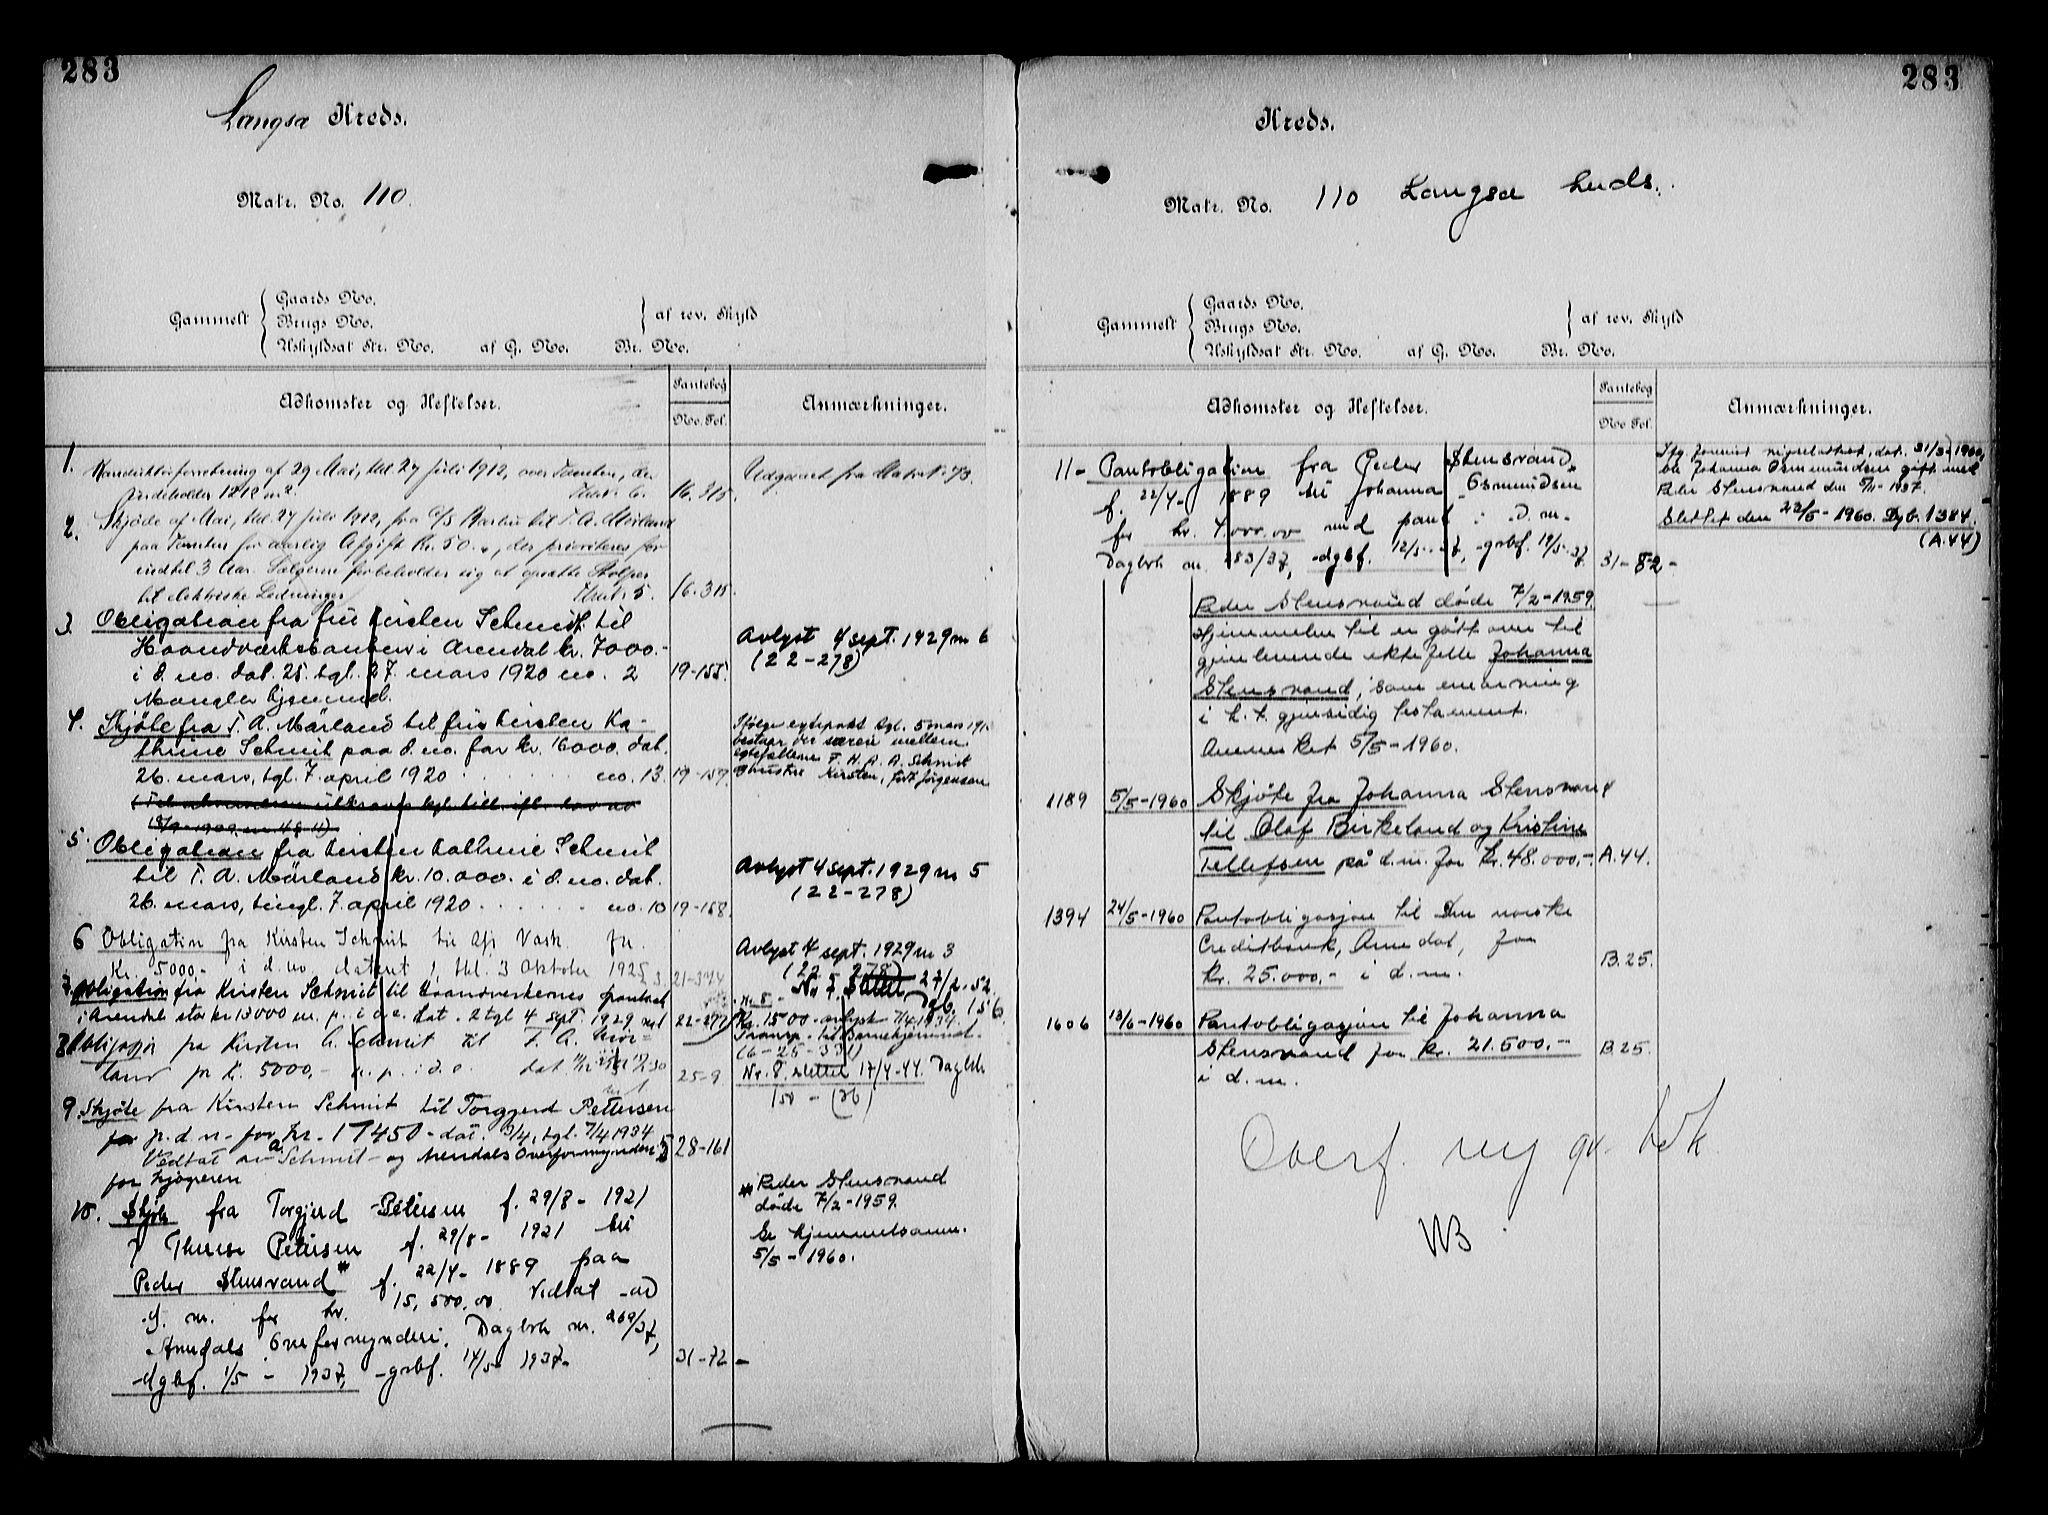 283
Langsæ Kreds.
Matr. No. 110.
Gammelt
Gaards No.
Brugs No.
Uskyldsat Str. No. af G. No. Br. No.
af rev. Skyld
Adkomster og Heftelser.
Pantebog
No. Fol.
Anmærkninger.
1. af 29 Mai, tkl 27 Juli 1912, over Tomten, der
indeholder 1212 m². 6. 16.315.
Udgaaet fra Matr.
2. Skjøde af Mai, tkl 27 Juli 1912, fra til T. A. Mørland
paa Tomten for aarlig Afgift Kr. 50.-, der prioriteres for
indtil 3 Aar. Sælgeren forbeholder sig at opsætte Stolper
til elektriske Ledninger 5. 16.315.
3. Obligation fra fru Kirsten Schmidt til
Haandverksbanken i Arendal kr. 7000.-
i d. no. dat. 25. tgl. 27. mars 1920 no. 2 19-155.
Mangler hjemmel.
Avlyst 4 sept. 1929 nr 6
(22-278)
4. Skjøte fra T. A. Mørland til fru Kirsten Ka-
thrine Schmit paa d. no. for kr. 16000. dat.
26. mars, tgl. 7. april 1920 no. 13. 19-157.
Ifølge egtepakt tgl. 5 mars
bestaar der særeie mellem
egtefællene F. H. A. A. Schmidt
og hustru Kirsten, født Jørgensen
5. Obligation fra Kirsten Kathrine Schmit
til T. A. Mørland kr. 10.000. i d. no. dat.
26. mars, tingl. 7. april 1920 no. 10 19-158.
Avlyst 4 sept. 1929 nr 5
(22-278)
6 Obligation fra Kirsten Schmit til Afs. Vask. for
Kr. 5000,- i d. no. datert 1, tkl. 3 Oktober 1925, 3 21-374
Avlyst 4 sept. 1929 nr 3
(22 278)
7. Obligation fra Kirsten Schmit til Haandverkernes
i Arendal stor kr 13000 m. p. i d. e. Dat. 2 tgl 4 sept. 1929 22-277
Nr. 7. Slettet 27/2.52
Dgb. 156
8 Obligasjon fra Kirsten C. Schmit til T. A. Mør-
land for k. 5000,- m. p. i d. e. dat 25-9
Nr. 8.
Kr. 1500 avlyst 7/4 1934
Transp. til
(6-25-331)
Nr. 8. slettet 17/4-44. Dagbok
150 - (26)
9. Skjøte fra Kirsten Schmit til Torggerd Pettersen
p. d. n. for kr. 17450 - dat. 3/4, tgl. 7/4 1934
Vedtat av Schmit - og Arendals Overformynderi 5 28-161
for kjøperen
10. Skjøte fra Torgjerd Petersen f. 29/8-1921
Therese Petersen f. 29/8-1921 til
Peder Stensvand* f. 22/4-1889 paa
d. m. for kr. 15,500,00. Vedtat -av
Arendals Overformynderi. Dagbok nr. 269/37,
-dgbf. 1/5 - 1937, -grbf. 14/5 1937- 31-72-
* Peder Stensvand
døde 7/2-1959.
Se hjemmelsanm.
5/5-1960.
283
Kreds.
Matr. No. 110 Langsæ kreds.
Gammelt
Gaards No.
Brugs No.
Uskyldsat Str. No. af G. No. Br. No.
af rev. Skyld
Adkomster og Heftelser.
Pantebog
No Fol.
Anmærkninger.
11- Pantobligation fra Peder Stensvand
f. 22/4-1889 til Johanna Osmundsen
for kr. 4000.00 med pant i d. m.
Dagbok nr. 283/37, -dgbf. 12/5-37, -grbf. 19/5-37. 31-82-
Ifg. forevist vigselattest, dat. 31/3 1960,
ble Johanna Osmundsen gift med
Peder Stensvand den 5/11-1937.
Slettet den 23/5-1960. Dgb. 1384.
(A.44)
Peder Stensvand døde 7/2-1959.
Hjemmelen til er gått over til
gjenlevende ektefelle Johanna
Stensvand, som enearving
i h. t. gjensidig testament.
Anmerket 5/5-1960.
1189 5/5-1960 Skjøte fra Johanna Stensvand
til Olaf Birkeland og Kristine
Tellefsen på d.m. for kr. 48.000,-. A.44.
1394 24/5-1960 Pantobligasjon til Den norske
Creditbank, Arendal, for
kr. 25.000,- i d.m. B.25.
1606 13/6-1960 Pantobligasjon til Johanna
Stensvand for kr. 21.500,-
i d.m. B.25.
Overf. ny gr. bok